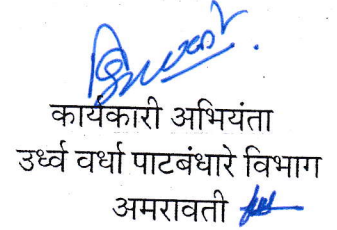 कार्यकारी अभियंता
उर्ध्व वर्धा पाटबंधारे विभाग
अमरावती